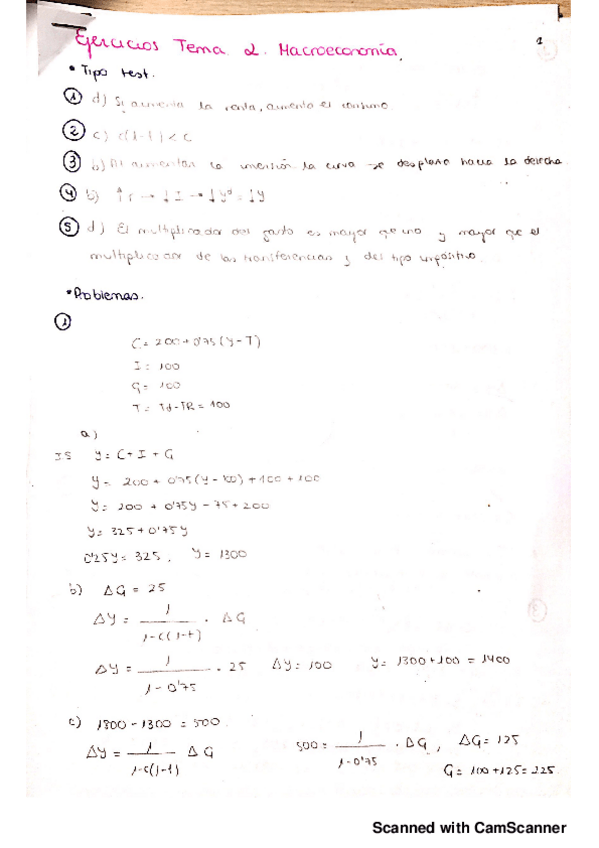 Ejercicios Tema 2. Macroeconomía.
1
• Tipo test.
① d) Si aumenta la renta, aumenta el consumo
② c) c(1-t) < c
③ b) Al aumentar la inversión la curva se desplaza hacia la derecha
④ b) ↑r → ↓I → ↓yᵈ = ↓y
⑤ d) El multiplicador del gasto es mayor que uno y mayor que el
multiplicador de las transferencias y del tipo impositivo.
• Problemas.
①
C = 200 + 0'75 (y-T)
I = 100
G = 100
T = Td-TR = 100
a)
IS y = C + I + G
y = 200 + 0'75 (y - 100) + 100 + 100
y = 200 + 0'75y - 75 + 200
y = 325 + 0'75y
0'25y = 325, y = 1300
b) ΔG = 25
Δy = 1 / 1-c(1-t) · ΔG
Δy = 1 / 1-0'75 · 25 Δy = 100 y = 1300+100 = 1400
c) 1800 - 1300 = 500
Δy = 1 / 1-c(1-t) - ΔG 500 = 1 / 1-0'75 · ΔG, ΔG = 125
G = 100+125 = 225
Scanned with CamScanner